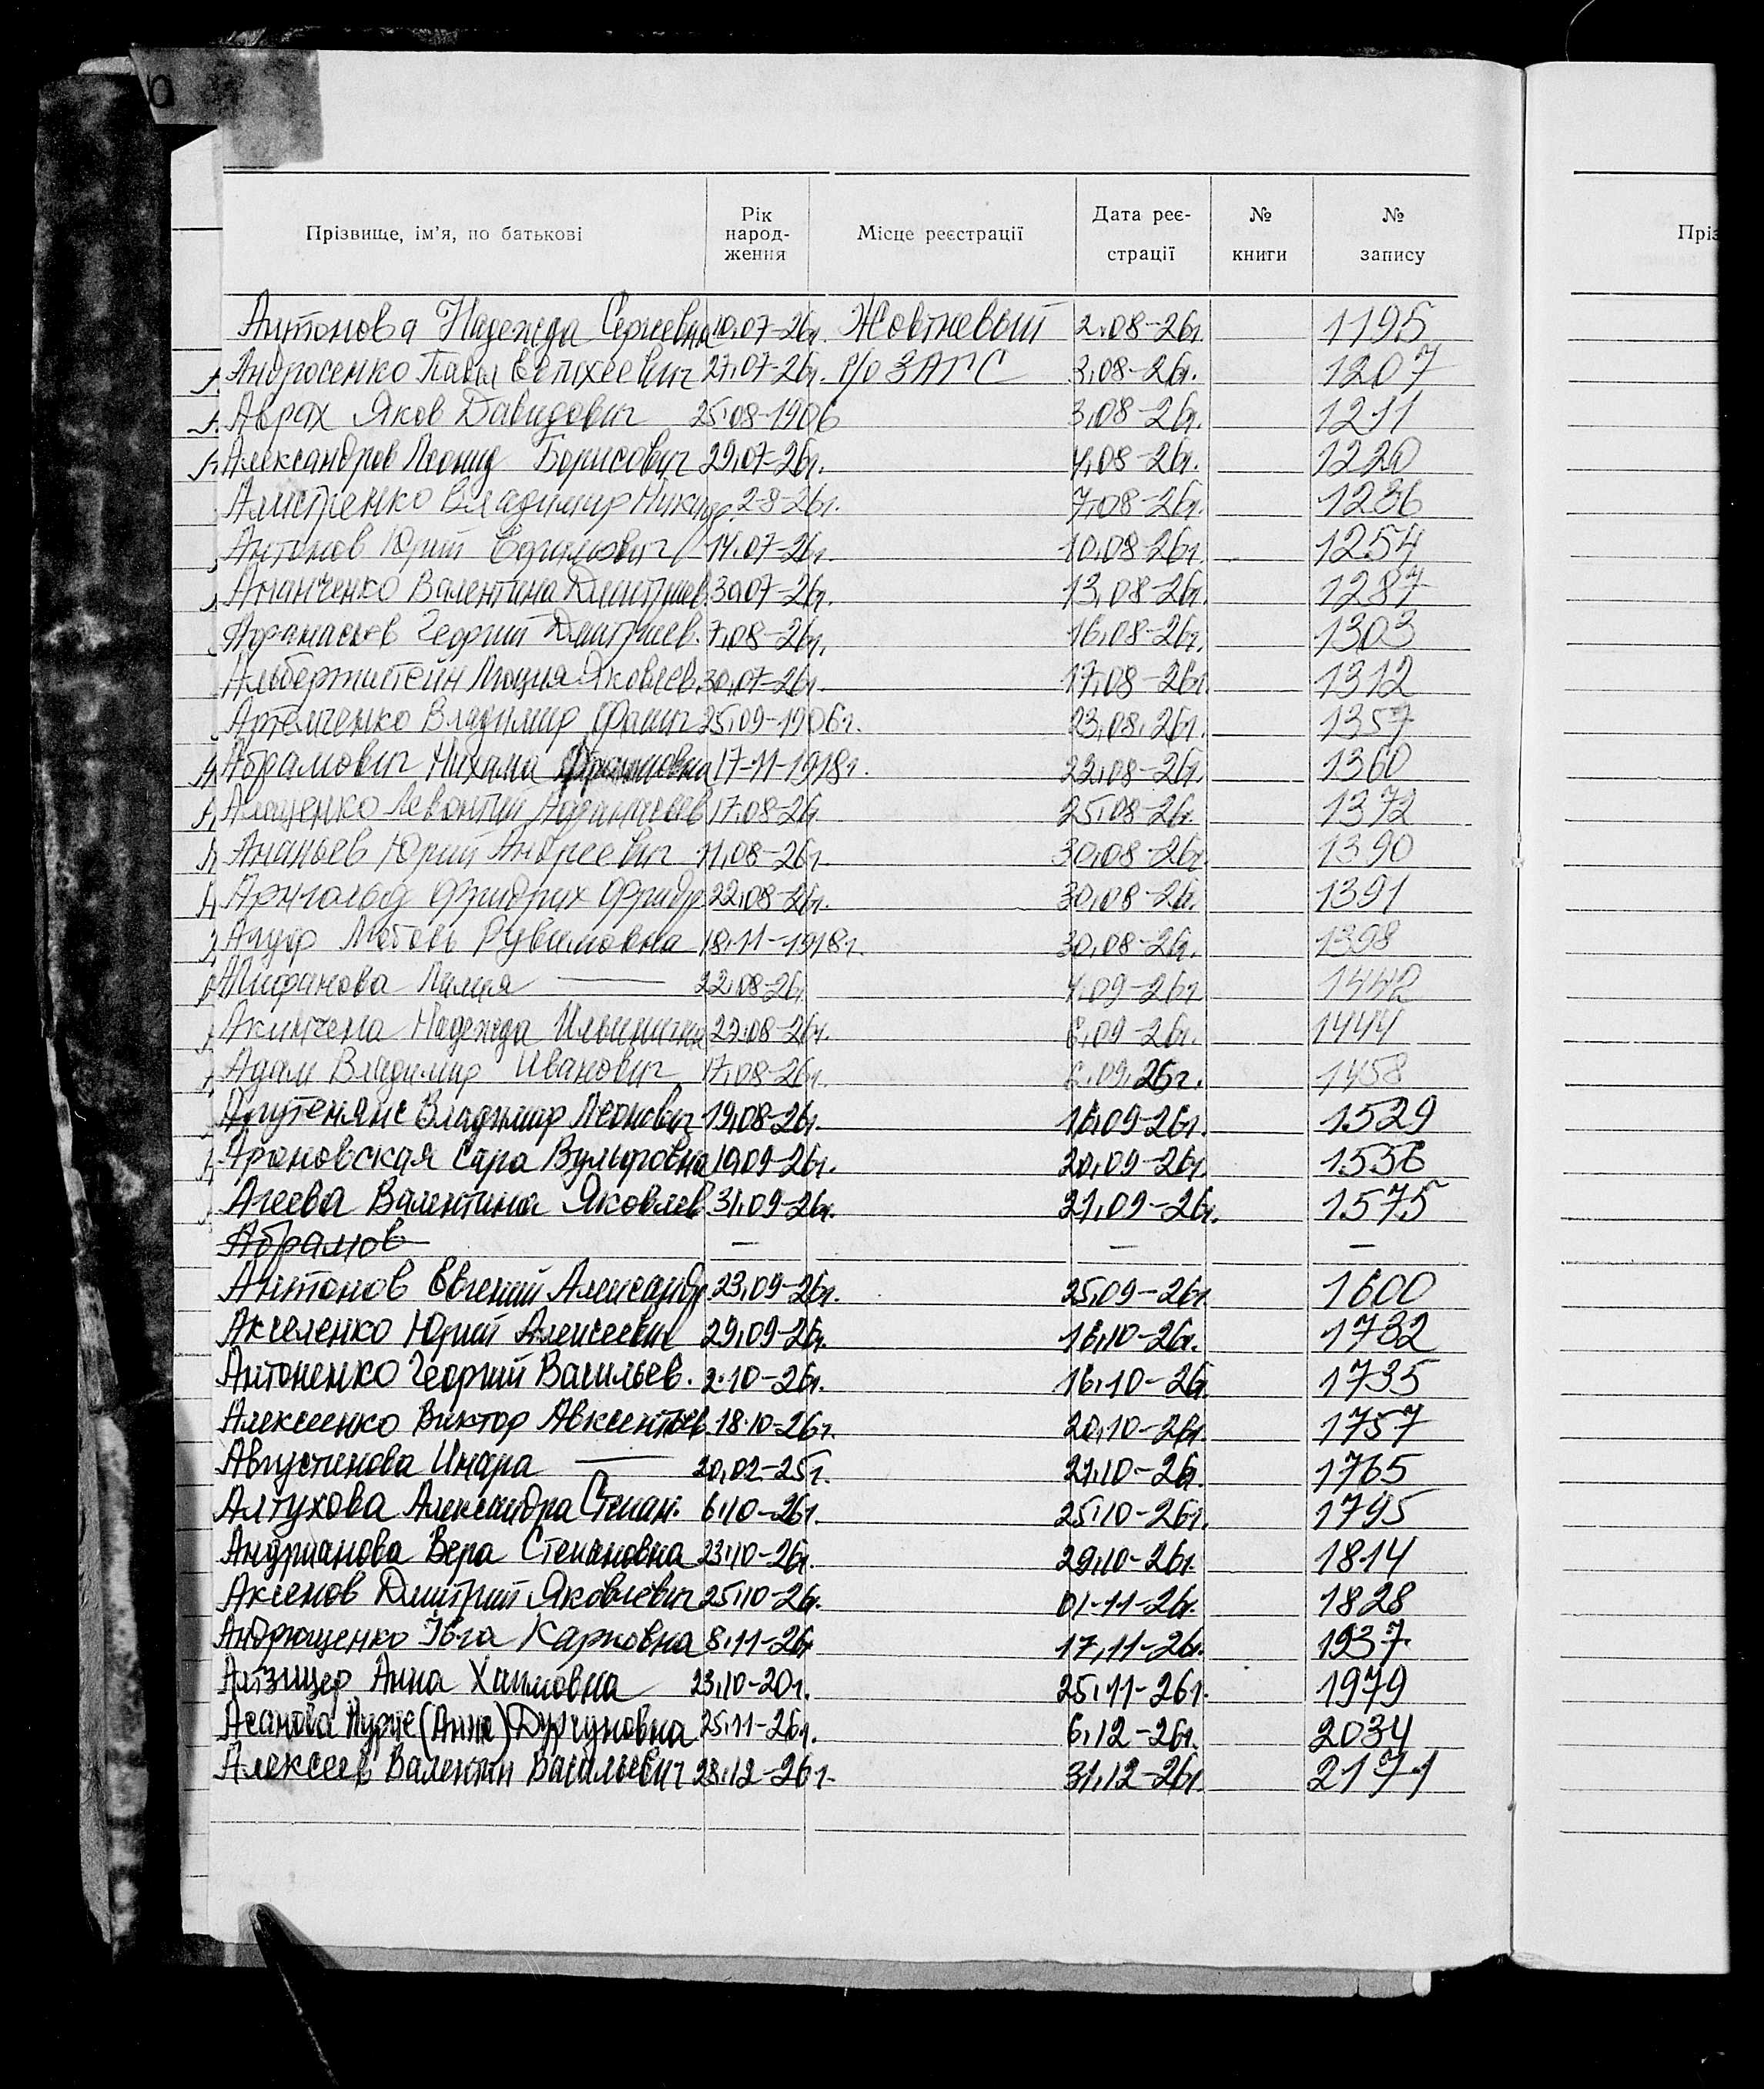 Прізвище, ім'я, по батькові Рік народ- ження Місце реєстрації Дата реє- страції № книги № запису
Антонова Надежда Сергеевна 10.07-26г. Жовтневый 2.08-26г. 1195
Андросенко Павел 27.07-26г. р/о ЗАГС 3.08-26г. 1207
Аврах Яков Давидович 25.08-1906 3.08-26г. 1211
Александров Леонид Борисович 29.07-26г. 4.08-26г. 1220
Владимир 2-8-26г. 7.08-26г. 1236
Антонов Юрий 14.07-26г. 10.08-26г. 1254
Ананченко Валентина Дмитриев. 30.07-26г. 13.08-26г. 1287
Афанасьев Георгий Дмитриев. 7.08-26г. 16.08-26г. 1303
Яковлев. 30.07-26г. 17.08-26г. 1312
Артемченко Владимир 25.09-1906г. 23.08.26г. 1357
Абрамович 17-11-1918г. 22.08-26г. 1360
17.08-26г. 25.08-26г. 1372
Ананьев Юрий Андреевич 11.08-26г. 30.08-26г. 1390
Арнгольд Фридрих Фридр. 22.08-26г. 30.08-26г. 1391
Любовь Рувимовна 18.11-1918г. 30.08-26г. 1398
22.08-26г. 4.09-26г.
Надежда Ильинична 6.09-26г. 1444
Адам Владимир Иванович 17.08-26г. 1458
Владимир Леонович 19.08-26г. 16.09-26г. 1529
Ароновская Сара Вульфовна 20.09-26г. 1556
Агеева Валентина Яковлев. 31.09-26г. 21.09-26г. 1575
Абрамов — — —
Антонов Евгений Александр. 23.09-26г. 25.09-26г. 1600
Акселенко Юрий Алексеевич 29.09-26г. 16.10-26г. 1732
Антоненко Георгий Васильев. 2.10-26г. 16.10-26г. 1735
Алексеенко Виктор Авксентьев. 18.10-26г. 20.10-26г. 1757
Августинова Индра — 20.02-25г. 21.10-26г. 1765
Алтухова Александра Степан. 6.10-26г. 25.10-26г. 1795
Андрианова Вера Степановна 23.10-26г. 29.10-26г. 1814
Аксенов Дмитрий Яковлевич 25.10-26г. 01-11-26г. 1828
Андрющенко Івга Карповна 8.11-26г. 17.11-26г. 1937
Анна Хаимовна 23.10-20г. 25.11-26г. 1979
Асанова (Анна) 25.11-26г. 6.12-26г. 2034
Алексеев Валентин Васильевич 28.12-26г. 31.12-26г. 2171
Пріз